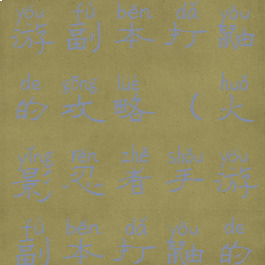 yóu fù běn dǎ yòu
游副本打釉
de gōng luè huǒ
的攻略（火
yǐng rěn zhě shǒu yóu
影忍者手游
fù běn dǎ yòu de
副本打釉的